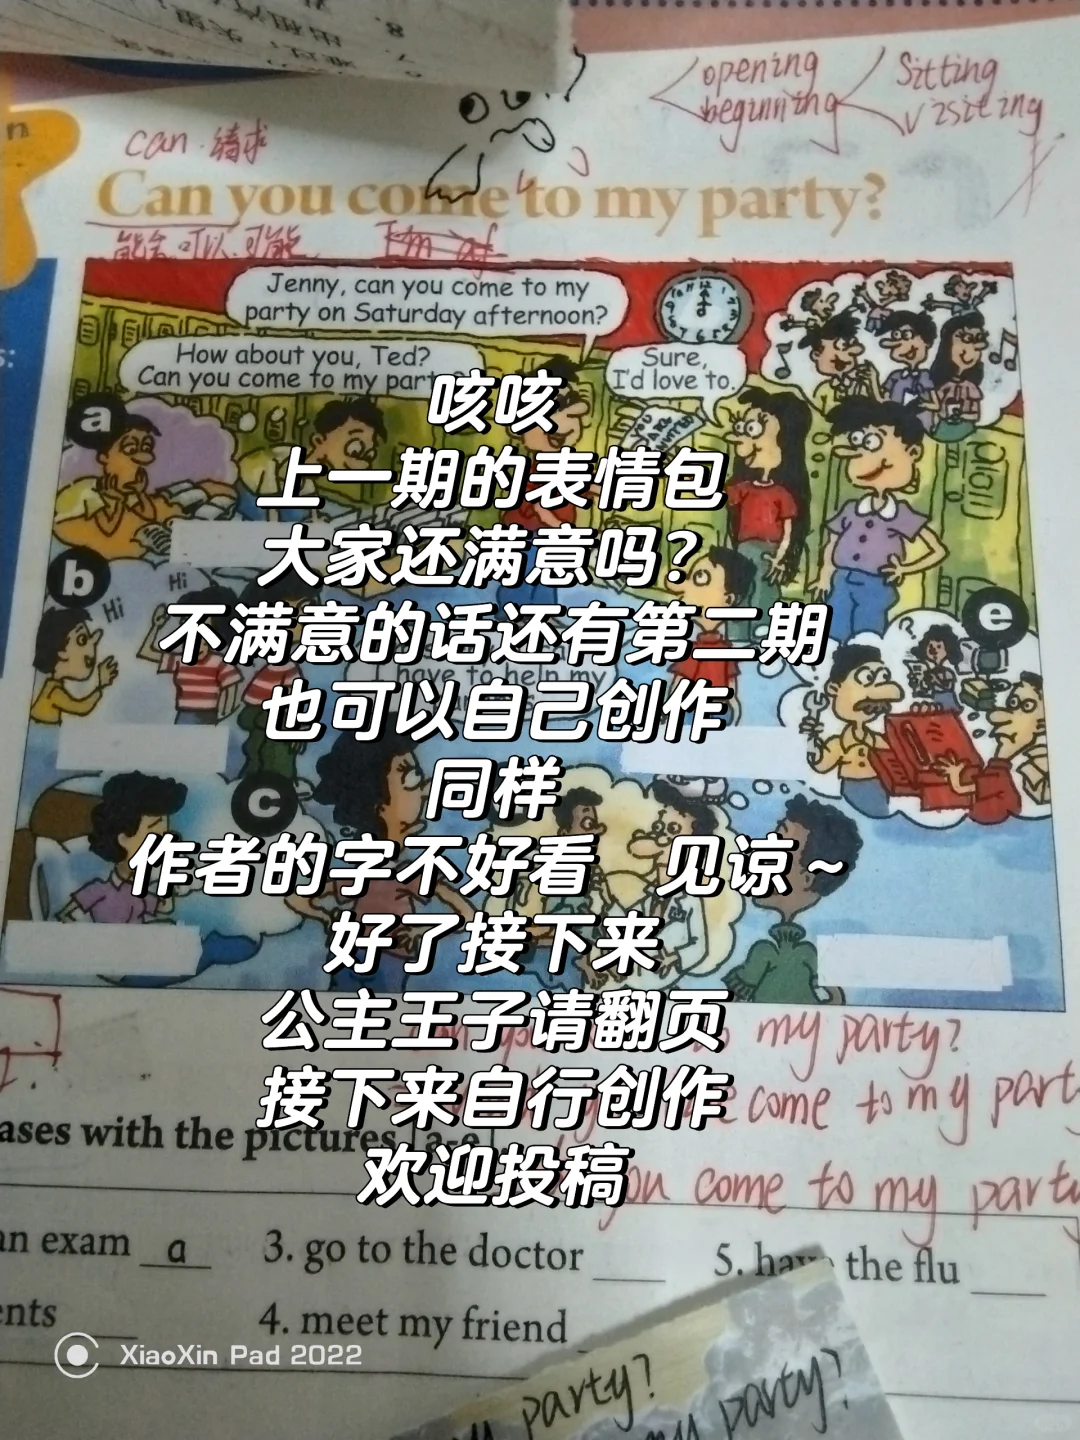 opening
beginning
Sitting
visiting
can.请求
Can you come to my party?
能会.可以.可能
Jenny, can you come to my
party on Saturday afternoon?
How about you, Ted?
Can you come to my party?
Sure,
I'd love to.
YOU
ARE
INVITED
a
b
Hi
Hi
c
e
have to help my
咳咳
上一期的表情包
大家还满意吗？
不满意的话还有第二期
也可以自己创作
同样
作者的字不好看 见谅～
好了接下来
公主王子请翻页
接下来自行创作
欢迎投稿
my party?
come to my party
you come to my party
ases with the pictures [a-e]
an exam a
3. go to the doctor
5. have the flu
ents
4. meet my friend
XiaoXin Pad 2022
my party?
my party?